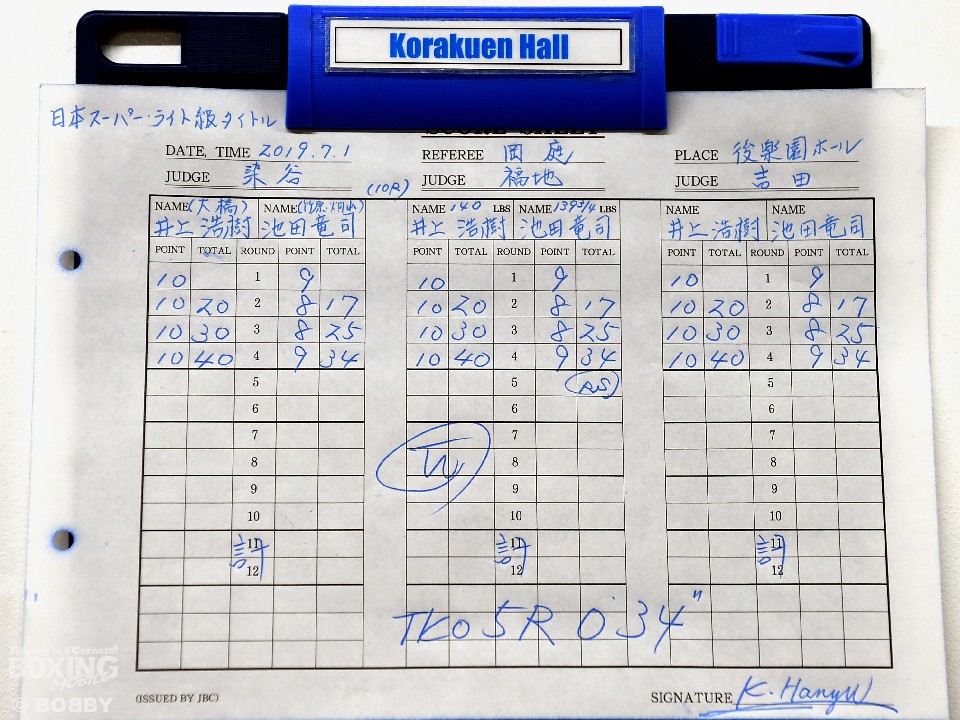 Korakuen Hall
日本スーパー・ライト級タイトル
SCORE SHEET
DATE, TIME 2019.7.1 REFEREE 岡庭 PLACE 後楽園ホール
JUDGE 染谷 (10R) JUDGE 福地 JUDGE 吉田
NAME (大橋) NAME (竹原・畑山) NAME 140 LBS NAME 139 3/4 LBS NAME NAME
井上浩樹 池田竜司 井上浩樹 池田竜司 井上浩樹 池田竜司
POINT TOTAL ROUND POINT TOTAL POINT TOTAL ROUND POINT TOTAL POINT TOTAL ROUND POINT TOTAL
10 1 9 10 1 9 10 1 9
10 20 2 8 17 10 20 2 8 17 10 20 2 8 17
10 30 3 8 25 10 30 3 8 25 10 30 3 8 25
10 40 4 9 34 10 40 4 9 34 10 40 4 9 34
5 5 5
6 6 6
7 7 7
8 W 8 8
9 9 9
10 10 10
計 11 計 11 計 11
12 12 12
TKO 5R 0'34"
(ISSUED BY JBC) SIGNATURE K. Hanyu
BOXING
MOBILE
© BOBBY